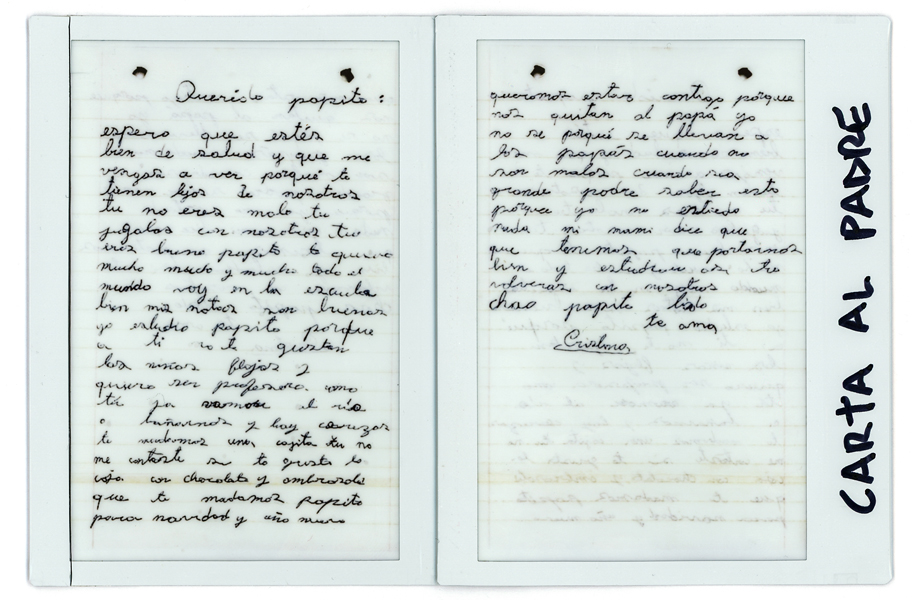 Querido papito:
espero que estés
bien de salud y que me
vengas a ver porqué te
tienen lejos de nosotros
tu no eres malo tu
jugabas con nosotros tu
eres bueno papito te quiero
mucho mucho y mucho todo el
mundo voy en la escuela
bien mis notas son buenas
yo estudio papito porque
a ti no te gustan
los niños flojos y
quiero ser profesora como
tú ya vamos el río
a bañarnos y hay cerezas
te mandamos una cajita tu no
me contaste si te gusta la
caja con chocolate y ambrosoli
que te madamos papito
para navidad y año nuevo
queremos estar contigo porque
nos quitan al papá yo
no se porqué se llevan a
los papás cuando no
son malos cuando sea
grande podre saber esto
porque yo no entiedo
nada mi mami dice que
que tenemos que portarnos
bien y estudiar asi tu
volveras con nosotros
chao papito lido
te ama
CARTA AL PADRE